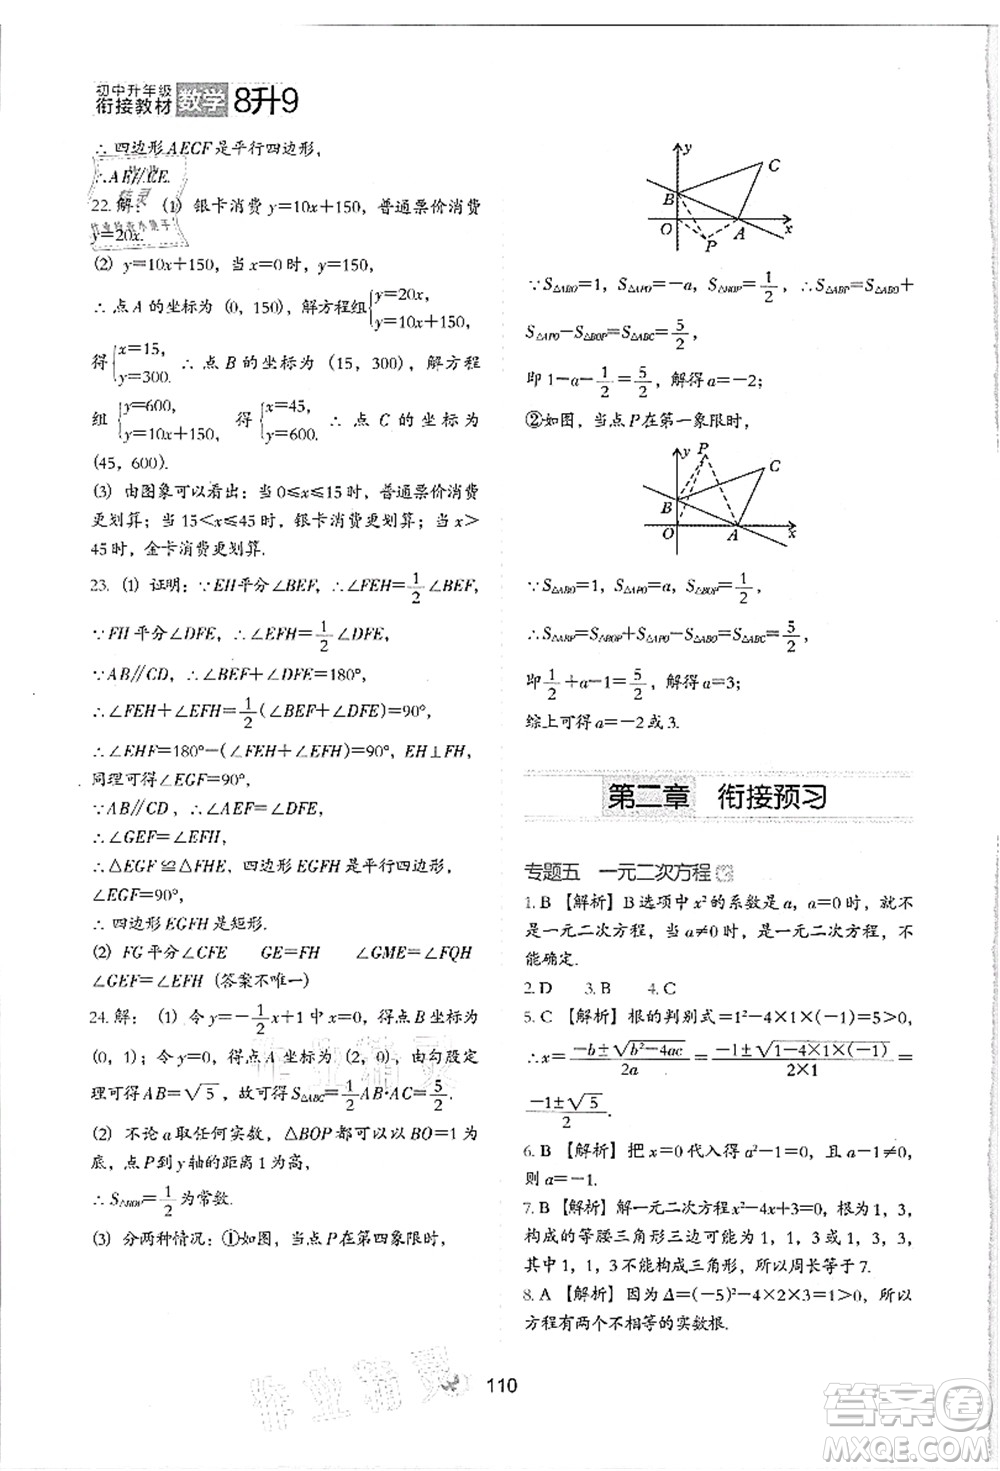 初中升年级
衔接教材 数学 8升9
∴四边形AECF是平行四边形,
∴AE∥CE.
22.解：(1) 银卡消费y=10x+150，普通票价消费
y=20x.
(2) y=10x+150，当x=0时，y=150，
∴点A的坐标为（0，150），解方程组{y=20x, y=10x+150,
得{x=15, y=300. ∴点B的坐标为（15，300），解方程
组{y=600, y=10x+150, 得{x=45, y=600. ∴点C的坐标为
(45，600).
(3) 由图象可以看出：当0≤x≤15时，普通票价消费
更划算；当15<x≤45时，银卡消费更划算；当x>
45时，金卡消费更划算.
23.(1) 证明：∵EH平分∠BEF，∴∠FEH=1/2∠BEF，
∵FH平分∠DFE，∴∠EFH=1/2∠DFE，
∵AB∥CD，∴∠BEF+∠DFE=180°，
∴∠FEH+∠EFH=1/2(∠BEF+∠DFE)=90°，
∴∠EHF=180°-(∠FEH+∠EFH)=90°，EH⊥FH，
同理可得∠EGF=90°，
∵AB∥CD，∴∠AEF=∠DFE，
∴∠GEF=∠EFH，
∴△EGF≌△FHE，四边形EGFH是平行四边形，
∠EGF=90°，
∴四边形EGFH是矩形.
(2) FG平分∠CFE GE=FH ∠GME=∠FQH
∠GEF=∠EFH（答案不唯一）
24.解：(1) 令y=-1/2x+1中x=0，得点B坐标为
(0，1)；令y=0，得点A坐标为（2，0），由勾股定
理可得AB=√5，故可得S△ABC=1/2AB·AC=5/2.
(2) 不论a取任何实数，△BOP都可以以BO=1为
底，点P到y轴的距离1为高，
∴S△BOP=1/2为常数.
(3) 分两种情况：①如图，当点P在第四象限时，
y
C
B
O
A
x
P
∵S△ABO=1，S△APO=-a，S△BOP=1/2，∴S△ABP=S△ABO+
S△APO-S△BOP=S△ABC=5/2，
即1-a-1/2=5/2，解得a=-2；
②如图，当点P在第一象限时，
y
P
C
B
O
A
x
∵S△ABO=1，S△APO=a，S△BOP=1/2，
∴S△ABP=S△BOP+S△APO-S△ABO=S△ABC=5/2，
即1/2+a-1=5/2，解得a=3；
综上可得a=-2或3.
第二章 衔接预习
专题五 一元二次方程
1.B【解析】B选项中x²的系数是a，a=0时，就不
是一元二次方程，当a≠0时，是一元二次方程，不
能确定.
2.D 3.B 4.C
5.C【解析】根的判别式=1²-4×1×(-1)=5>0，
∴x=(-b±√(b²-4ac))/2a=(-1±√(1-4×1×(-1)))/(2×1)=
(-1±√5)/2.
6.B【解析】把x=0代入得a²-1=0，且a-1≠0，
则a=-1.
7.B【解析】解一元二次方程x²-4x+3=0，根为1，3，
构成的等腰三角形三边可为1，1，3或1，3，3，其
中1，1，3不能构成三角形，所以周长等于7.
8.A【解析】因为Δ=(-5)²-4×2×3=1>0，所以
方程有两个不相等的实数根.
110
作业精灵
答案圈
MXQE.COM